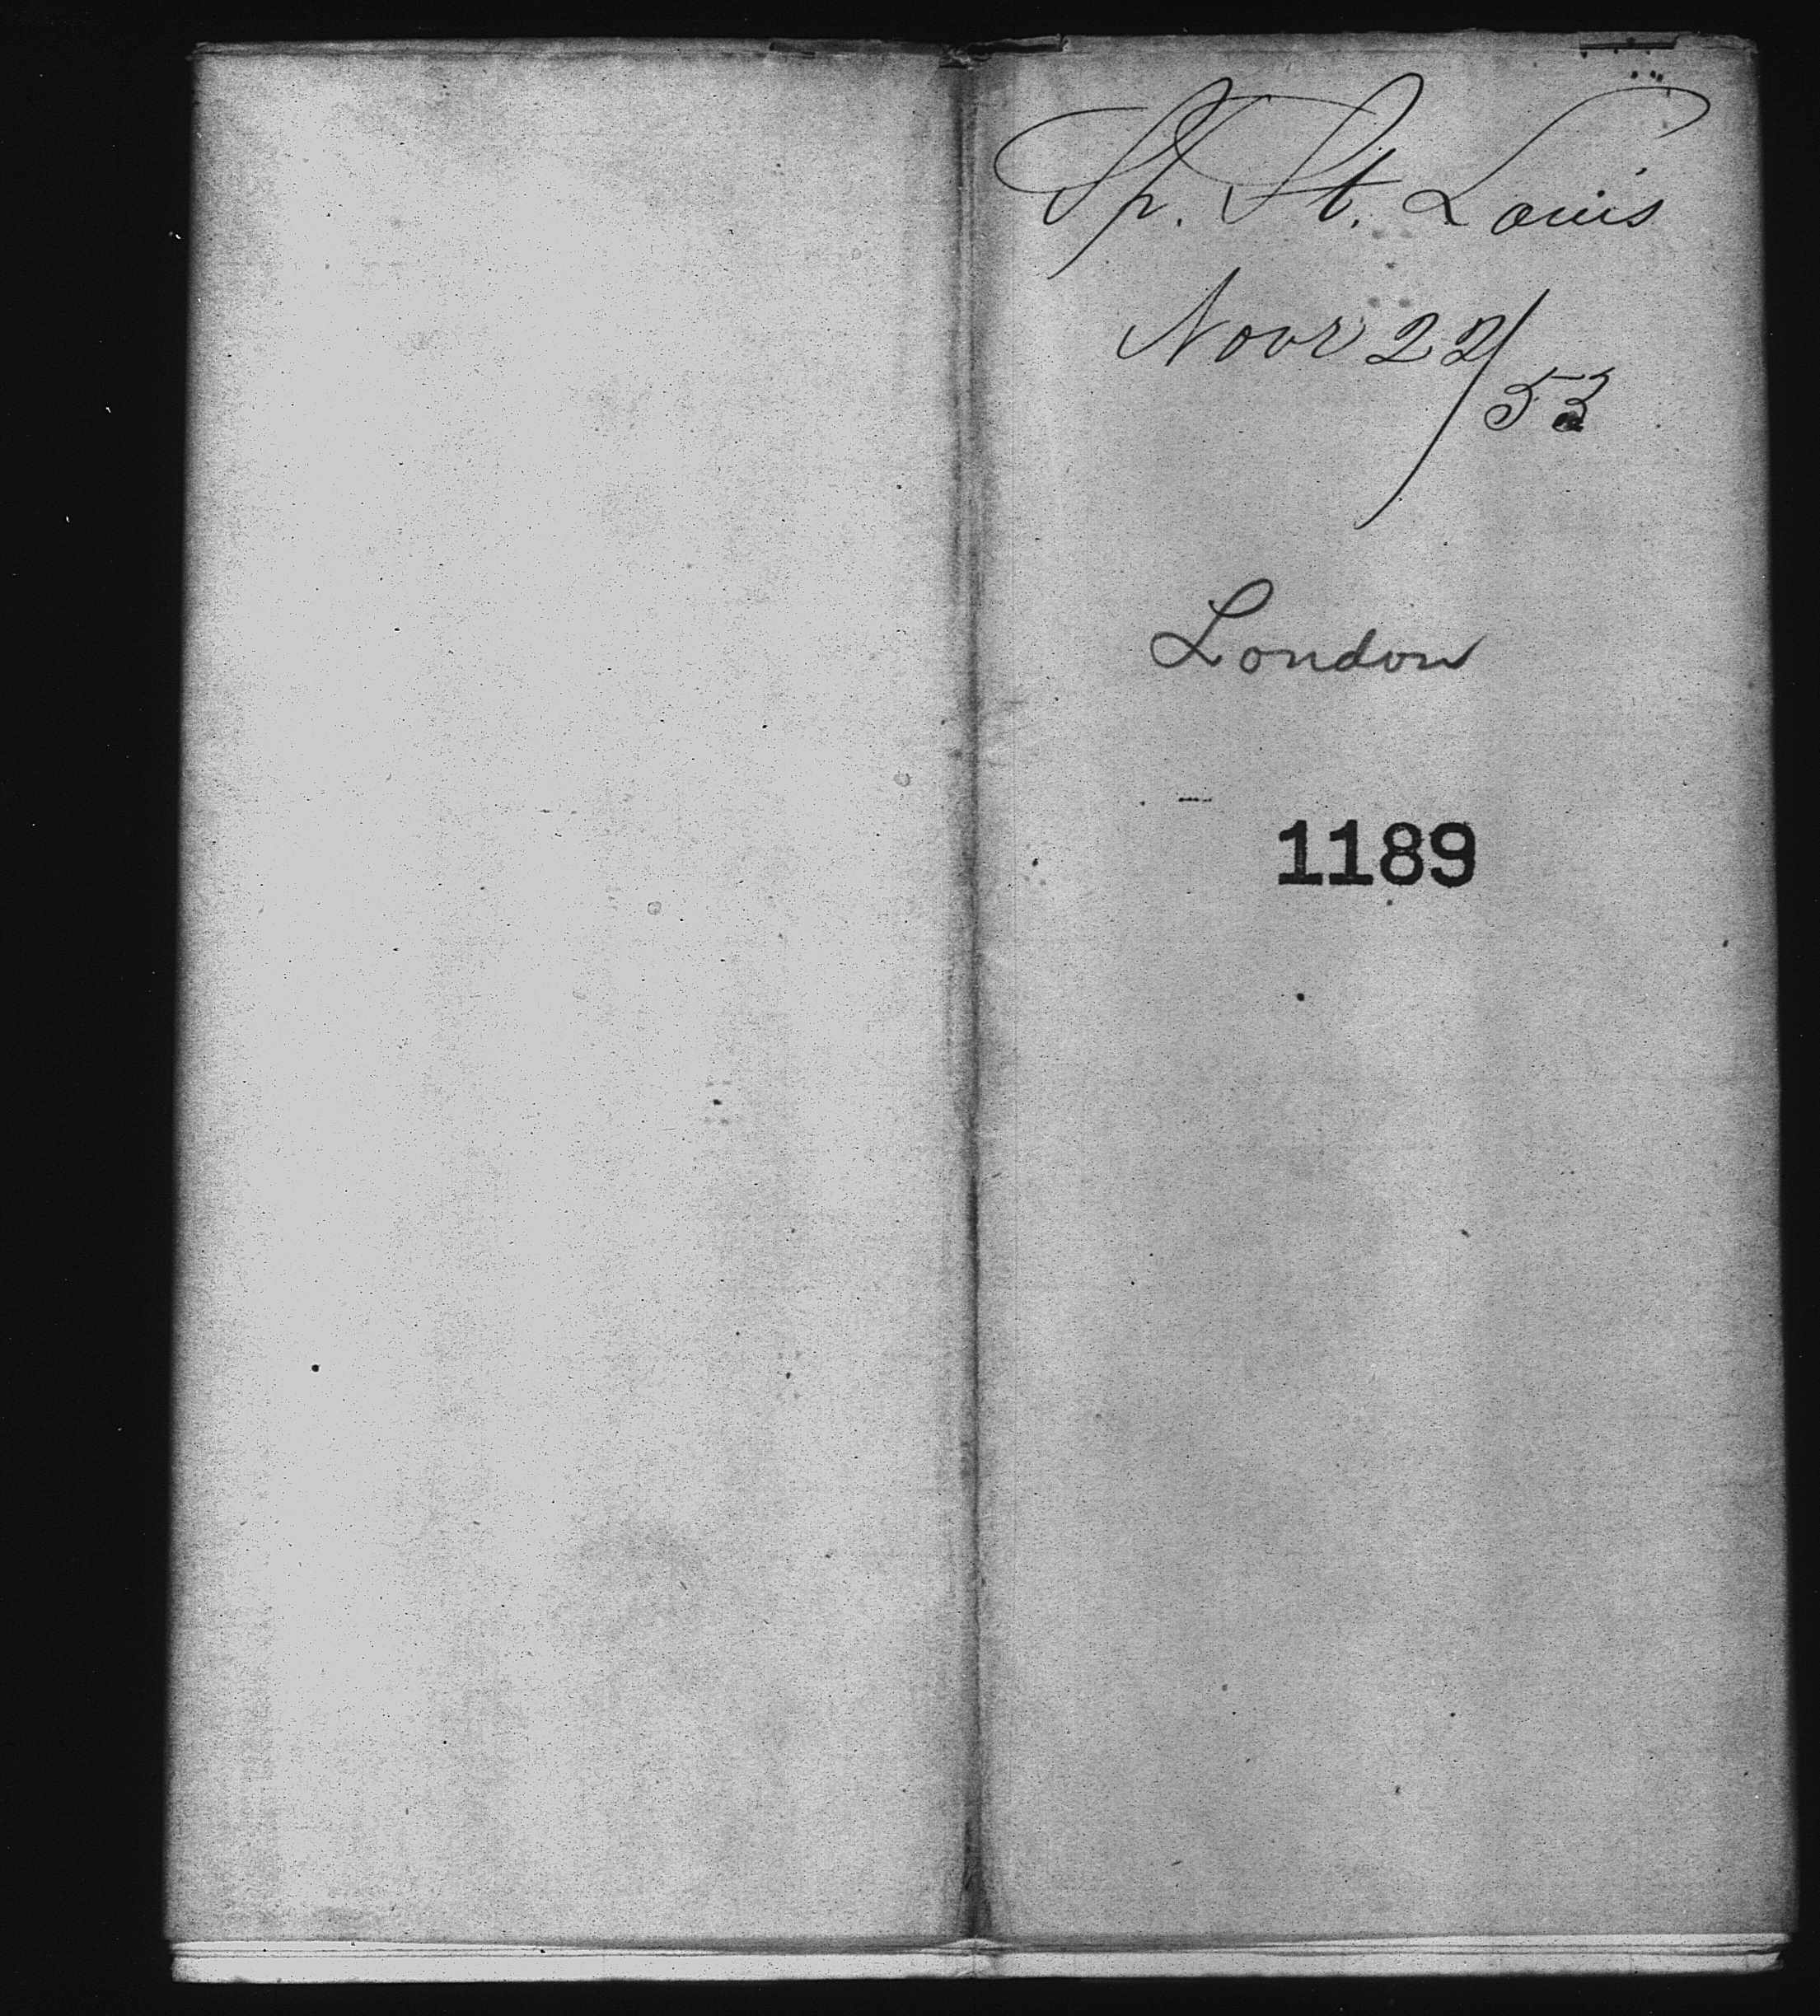 Sp. St. Louis
Novr 22/
53
London
1189